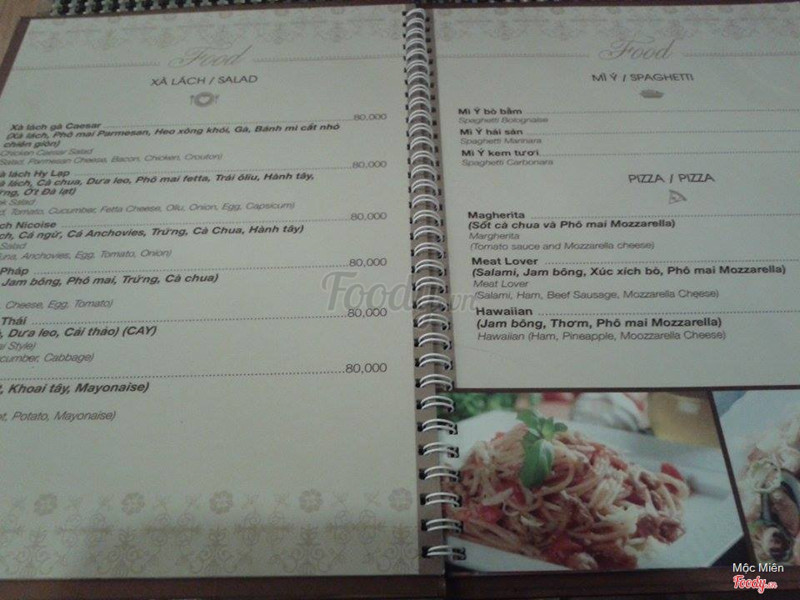 Food
XÀ LÁCH / SALAD
Xà lách gà Caesar 80,000
(Xà lách, Phô mai Parmesan, Heo xông khói, Gà, Bánh mì cắt nhỏ
chiên giòn)
Chicken Caesar Salad
Salad, Parmesan Cheese, Bacon, Chicken, Crouton)
lách Hy Lạp 80,000
lách, Cà chua, Dưa leo, Phô mai fetta, Trái ôliu, Hành tây,
Ớt Đà lạt)
Salad
Tomato, Cucumber, Fetta Cheese, Oliu, Onion, Egg, Capsicum)
Nicoise 80,000
Cá ngừ, Cá Anchovies, Trứng, Cà Chua, Hành tây)
Salad
Anchovies, Egg, Tomato, Onion)
Pháp 80,000
Jam bông, Phô mai, Trứng, Cà chua)
Cheese, Egg, Tomato)
Thái 80,000
Dưa leo, Cải thảo) (CAY)
Style)
Cabbage)
80,000
Khoai tây, Mayonaise)
Potato, Mayonaise)
Food
MÌ Ý / SPAGHETTI
Mì Ý bò bằm
Spaghetti Bolognaise
Mì Ý hải sản
Spaghetti Marinara
Mì Ý kem tươi
Spaghetti Carbonara
PIZZA / PIZZA
Magherita
(Sốt cà chua và Phô mai Mozzarella)
Margherita
(Tomato sauce and Mozzarella cheese)
Meat Lover
(Salami, Jam bông, Xúc xích bò, Phô mai Mozzarella)
Meat Lover
(Salami, Ham, Beef Sausage, Mozzarella Cheese)
Hawaiian
(Jam bông, Thơm, Phô mai Mozzarella)
Hawaiian (Ham, Pineapple, Moozzarella Cheese)
Foody.vn
Mộc Miên
Foody.vn